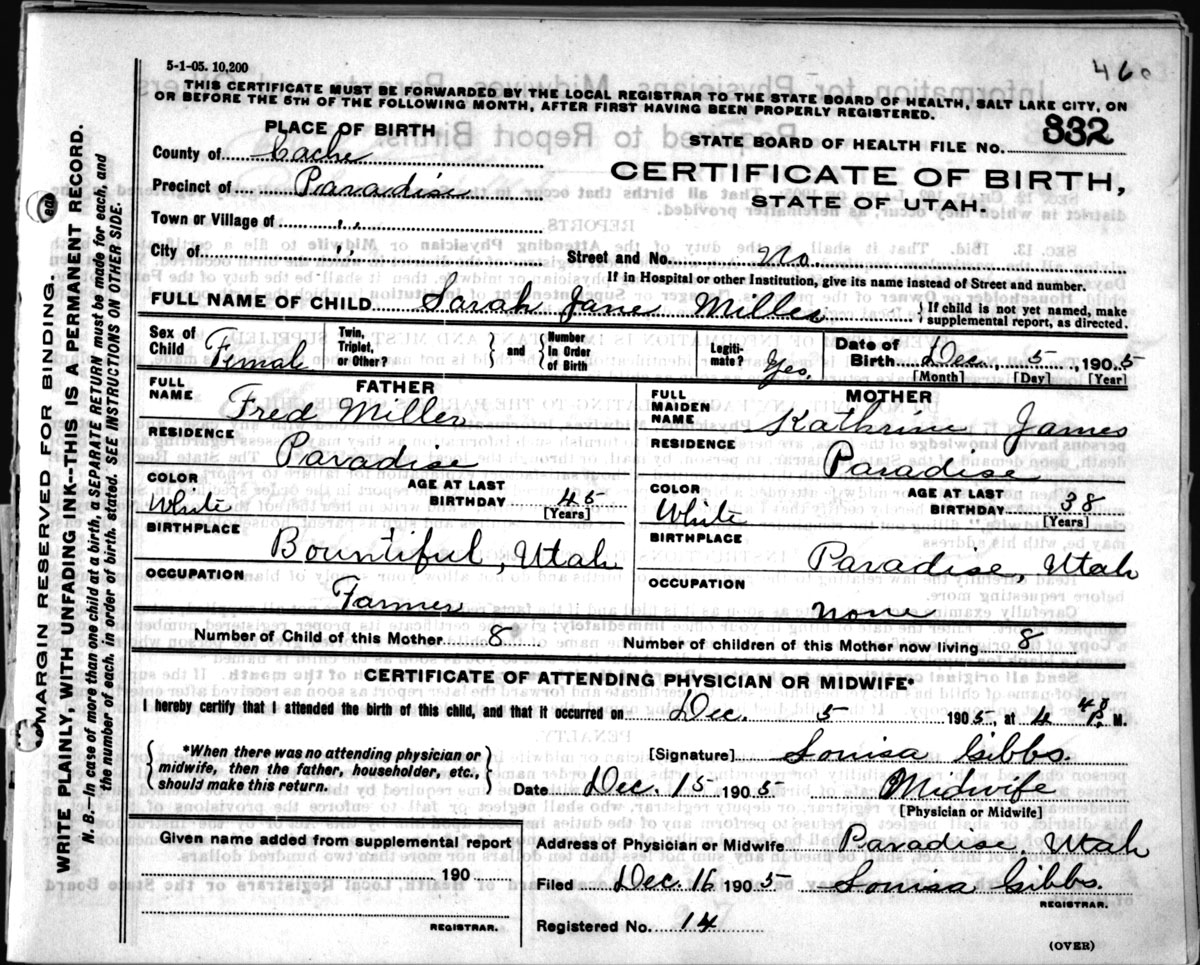 460
5-1-05. 10,200
THIS CERTIFICATE MUST BE FORWARDED BY THE LOCAL REGISTRAR TO THE STATE BOARD OF HEALTH, SALT LAKE CITY, ON
OR BEFORE THE 5TH OF THE FOLLOWING MONTH, AFTER FIRST HAVING BEEN PROPERLY REGISTERED.
PLACE OF BIRTH
STATE BOARD OF HEALTH FILE NO. 832
County of Cache
CERTIFICATE OF BIRTH,
Precinct of Paradise
STATE OF UTAH.
Town or Village of ,,
City of ,, Street and No. No
If in Hospital or other Institution, give its name instead of Street and number.
FULL NAME OF CHILD Sarah Jane Miller { If child is not yet named, make
supplemental report, as directed.
Sex of Child Female Twin, Triplet, or Other? } and { Number in Order of Birth Legiti-mate? Yes, Date of Birth Dec. 5, 1905
[Month] [Day] [Year]
FATHER
FULL NAME Fred Miller
RESIDENCE Paradise
COLOR White AGE AT LAST BIRTHDAY 45
[Years]
BIRTHPLACE Bountiful, Utah
OCCUPATION Farmer
MOTHER
FULL MAIDEN NAME Kathrine James
RESIDENCE Paradise
COLOR White AGE AT LAST BIRTHDAY 38
[Years]
BIRTHPLACE Paradise, Utah
OCCUPATION none
Number of Child of this Mother 8 Number of children of this Mother now living 8
CERTIFICATE OF ATTENDING PHYSICIAN OR MIDWIFE*
I hereby certify that I attended the birth of this child, and that it occurred on Dec. 5 1905, at 4 48 P. M.
{ *When there was no attending physician or
midwife, then the father, householder, etc.,
should make this return. }
[Signature] Louisa Gibbs.
Date Dec. 15 1905 Midwife
[Physician or Midwife]
Given name added from supplemental report
190
REGISTRAR.
Address of Physician or Midwife Paradise, Utah
Filed Dec. 16 1905 Louisa Gibbs.
REGISTRAR.
Registered No. 14
(OVER)
MARGIN RESERVED FOR BINDING.
WRITE PLAINLY WITH UNFADING INK—THIS IS A PERMANENT RECORD.
N. B.—In case of more than one child at a birth, a SEPARATE RETURN must be made for each, and
the number of each, in order of birth, stated. SEE INSTRUCTIONS ON OTHER SIDE.